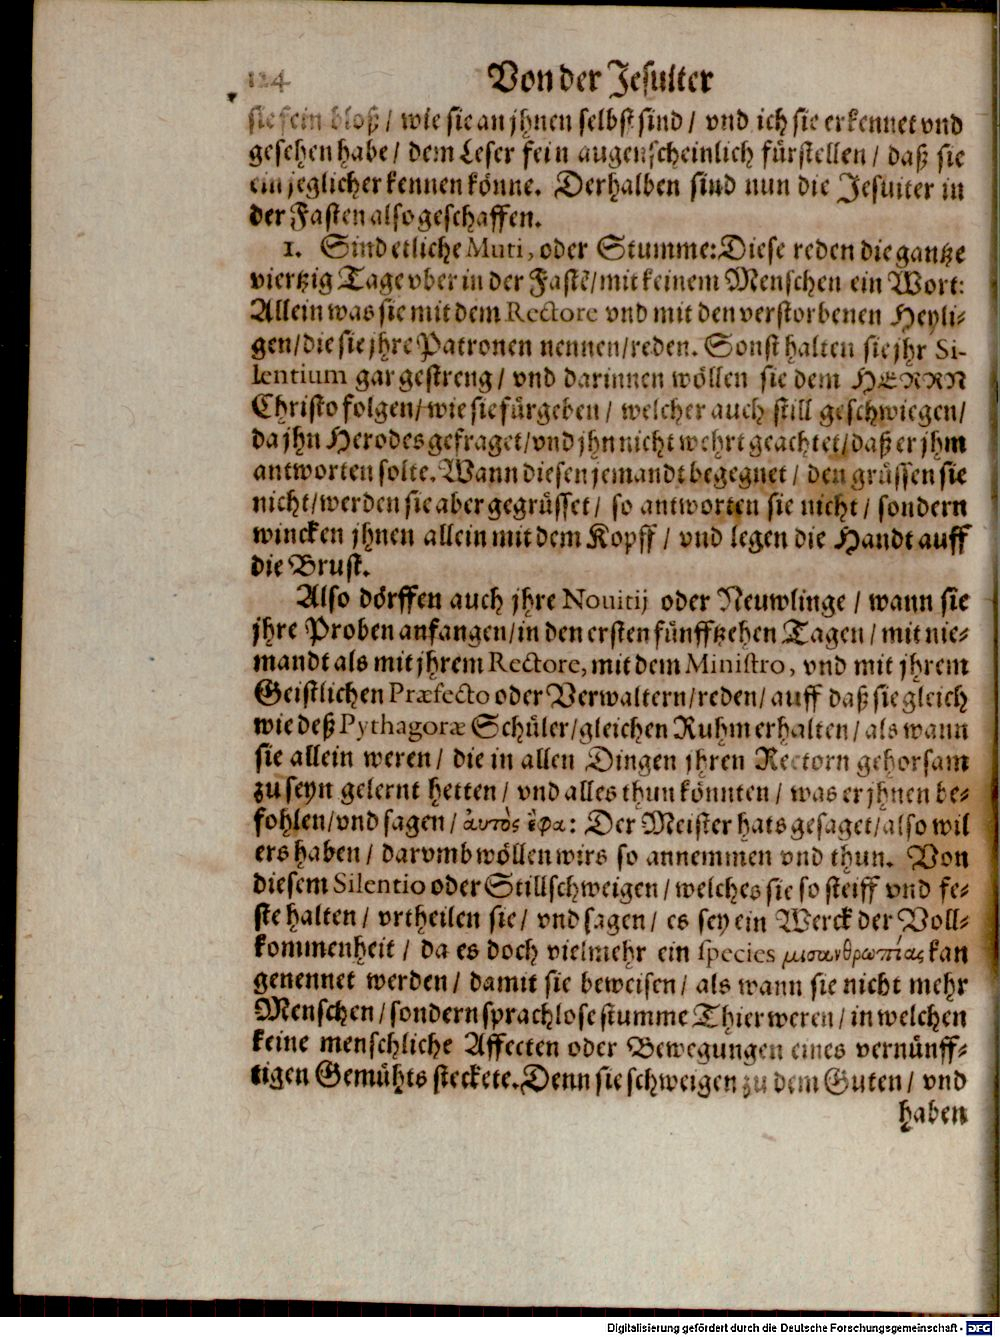 124 Von der Jesuiter
sie fein bloß / wie sie an jhnen selbst sind / vnd ich sie erkennet vnd
gesehen habe / dem Leser fein augenscheinlich fürstellen / daß sie
ein jeglicher kennen könne. Derhalben sind nun die Jesuiter in
der Fasten also geschaffen.
1. Sind etliche Muti, oder Stumme: Diese reden die gantze
viertzig Tage vber in der Fastẽ / mit keinem Menschen ein Wort:
Allein was sie mit dem Rectore vnd mit den verstorbenen Heyli-
gen / die sie jhre Patronen nennen / reden. Sonst halten sie jhr Si-
lentium gar gestreng / vnd darinnen wöllen sie dem HERRN
Christo folgen / wie sie fürgeben / welcher auch still geschwiegen /
da jhn Herodes gefraget / vnd jhn nicht wehrt geachtet / daß er jhm
antworten solte. Wann diesen jemandt begegnet / den grüssen sie
nicht / werden sie aber gegrüsset / so antworten sie nicht / sondern
wincken jhnen allein mit dem Kopff / vnd legen die Handt auff
die Brust.
Also dörffen auch jhre Nouitij oder Neuwlinge / wann sie
jhre Proben anfangen / in den ersten fünfftzehen Tagen / mit nie-
mandt als mit jhrem Rectore, mit dem Ministro, vnd mit jhrem
Geistlichen Præfecto oder Verwaltern / reden / auff daß sie gleich
wie deß Pythagoræ Schüler / gleichen Ruhm erhalten / als wann
sie allein weren / die in allen Dingen jhren Rectorn gehorsam
zu seyn gelernt hetten / vnd alles thun könnten / was er jhnen be-
fohlen / vnd sagen / ἀυτὸς ἔφα: Der Meister hats gesaget / also wil
ers haben / darvmb wöllen wirs so annemmen vnd thun. Von
diesem Silentio oder Stillschweigen / welches sie so steiff vnd fe-
ste halten / vrtheilen sie / vnd sagen / es sey ein Werck der Voll-
kommenheit / da es doch vielmehr ein species μισανθρωπίας kan
genennet werden / damit sie beweisen / als wann sie nicht mehr
Menschen / sondern sprachlose stumme Thier weren / in welchen
keine menschliche Affecten oder Bewegungen eines vernünff-
tigen Gemühts steckete. Denn sie schweigen zu dem Guten / vnd
haben
Digitalisierung gefördert durch die Deutsche Forschungsgemeinschaft - DFG